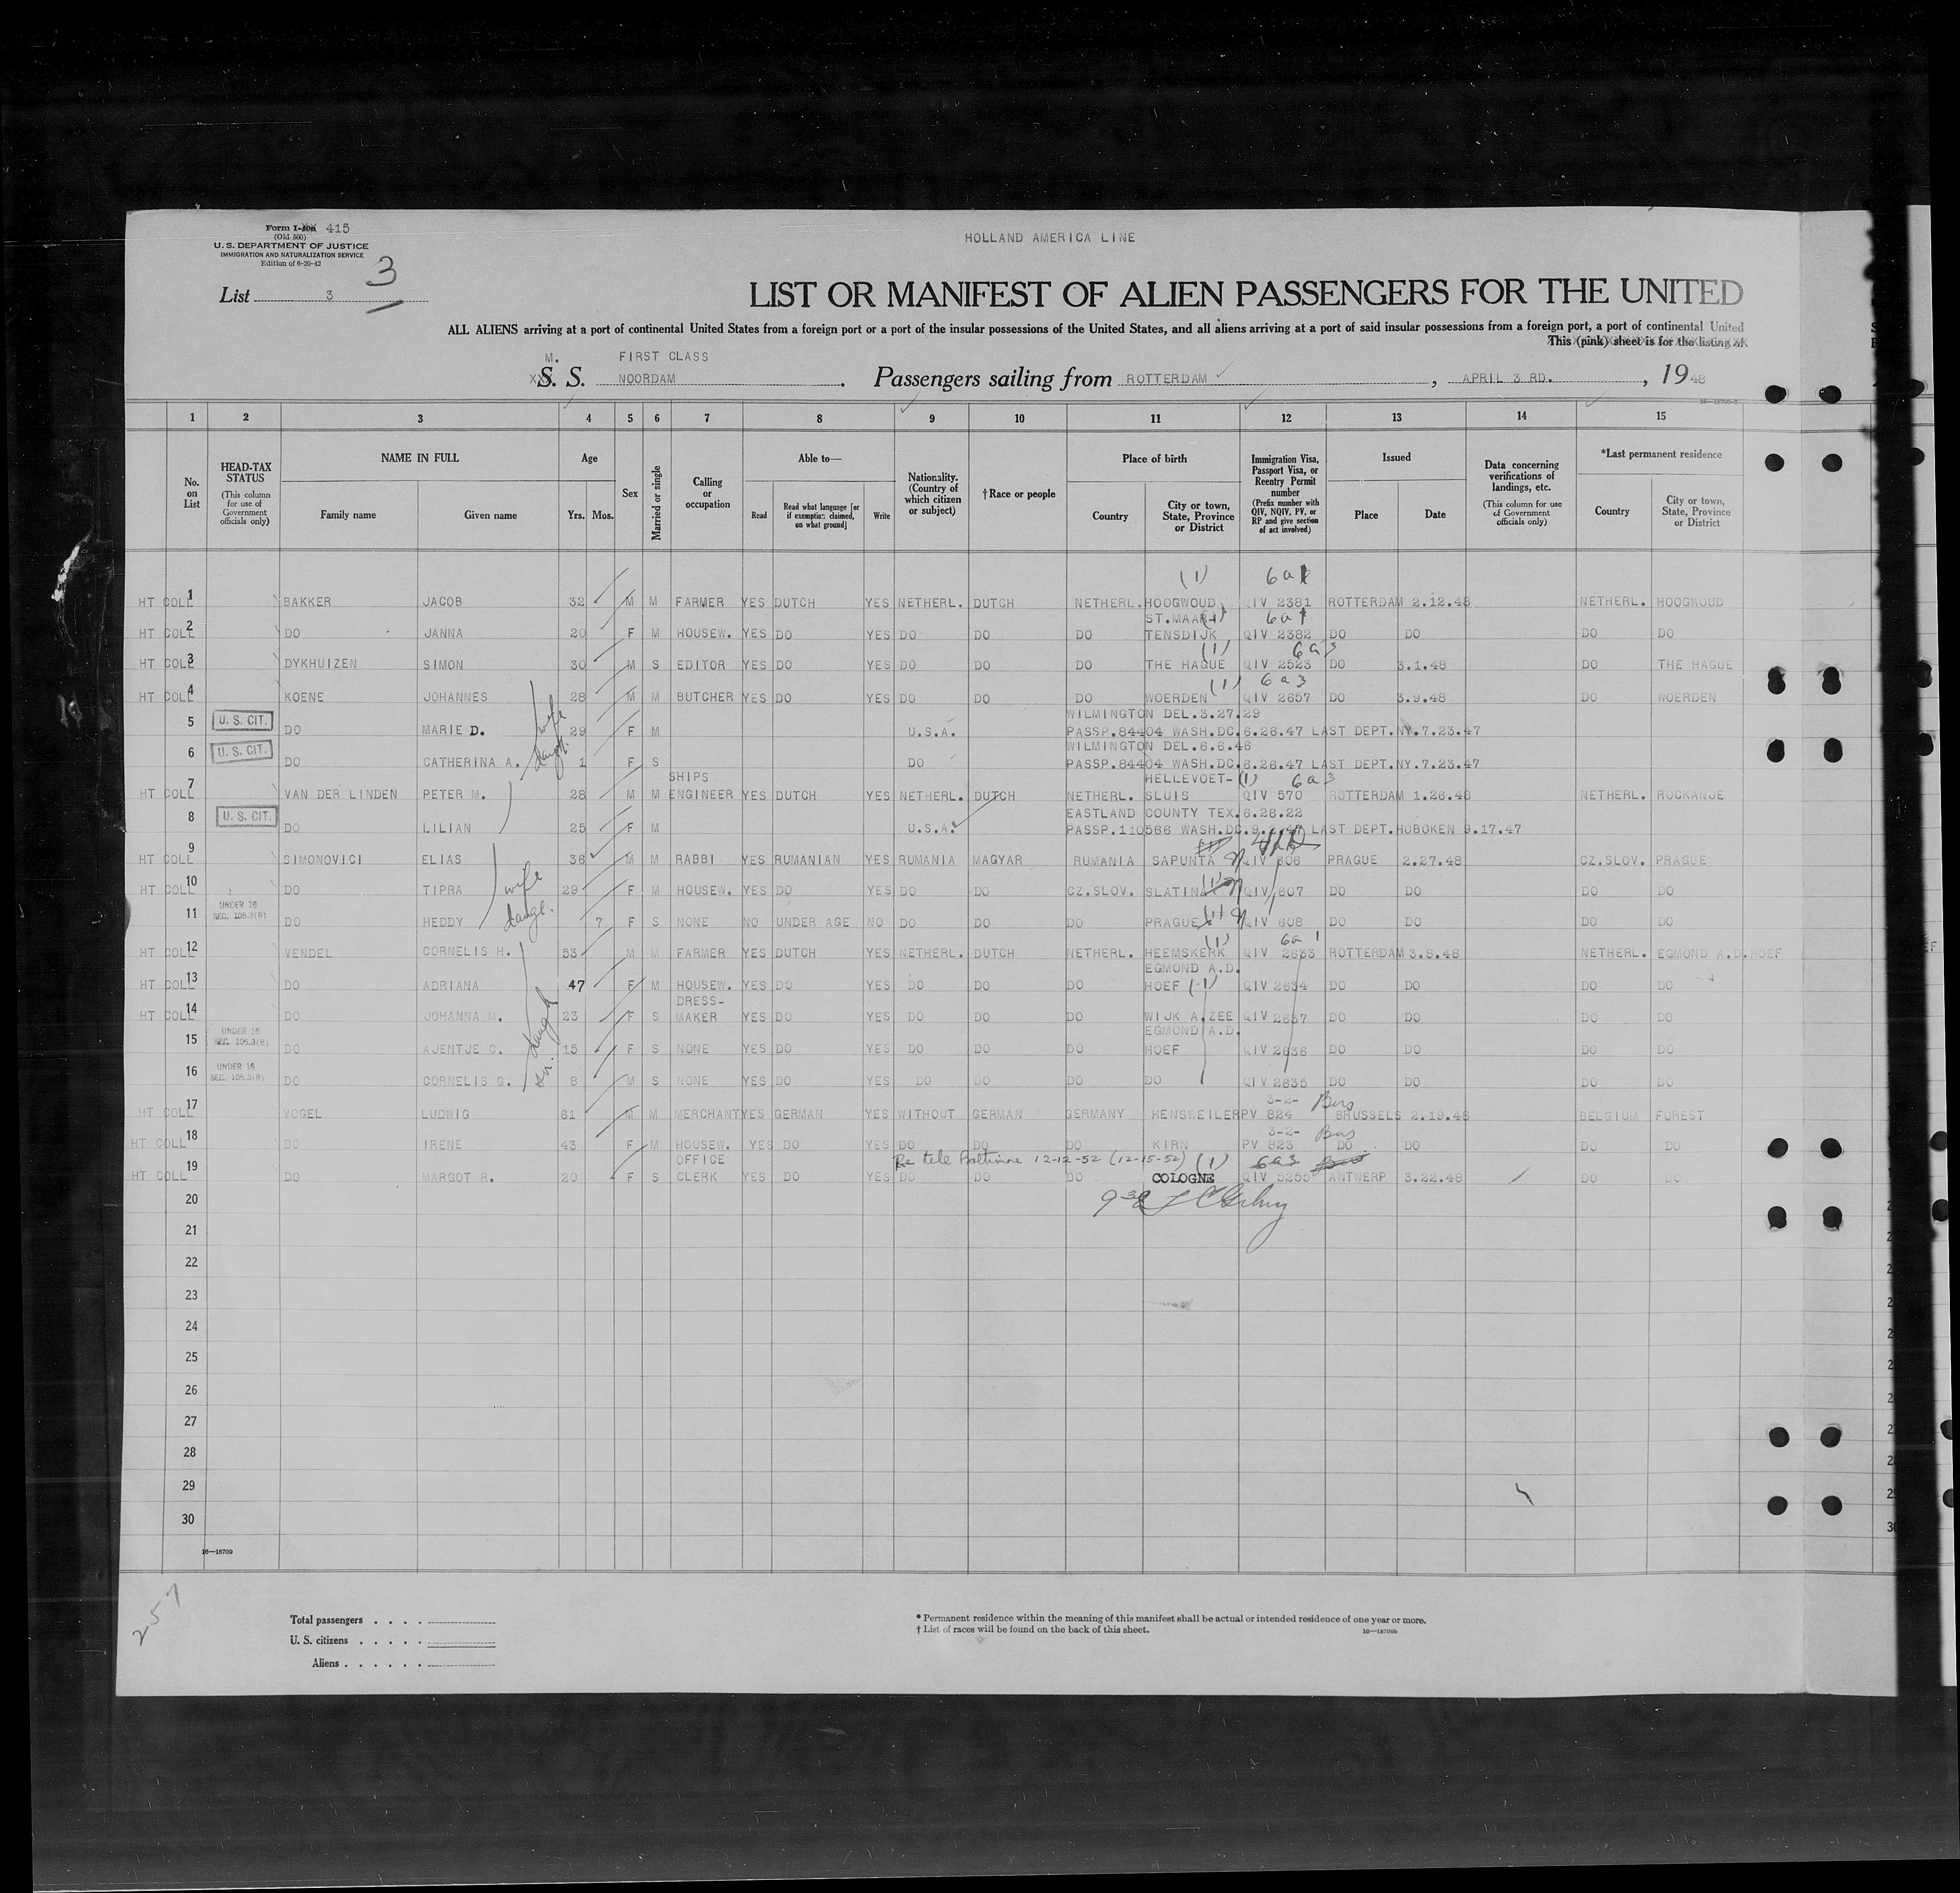 Form I-415
(Old 500)
U. S. DEPARTMENT OF JUSTICE
IMMIGRATION AND NATURALIZATION SERVICE
Edition of 6-20-42
3
List 3
HOLLAND AMERICA LINE
LIST OR MANIFEST OF ALIEN PASSENGERS FOR THE UNITED
ALL ALIENS arriving at a port of continental United States from a foreign port or a port of the insular possessions of the United States, and all aliens arriving at a port of said insular possessions from a foreign port, a port of continental United
This (pink) sheet is for the listing of
M. FIRST CLASS
S. S. NOORDAM . Passengers sailing from ROTTERDAM , APRIL 3 RD. , 1948
1 2 3 4 5 6 7 8 9 10 11 12 13 14 15
No. on List
HEAD-TAX STATUS (This column for use of Government officials only)
NAME IN FULL Family name Given name
Age Yrs. Mos.
Sex
Married or single
Calling or occupation
Able to— Read Read what language [or if exemption claimed, on what ground] Write
Nationality. (Country of which citizen or subject)
†Race or people
Place of birth Country City or town, State, Province or District
Immigration Visa, Passport Visa, or Reentry Permit number (Prefix number with QIV, NQIV, PV, or RP and give section of act involved)
Issued Place Date
Data concerning verifications of landings, etc. (This column for use of Government officials only)
*Last permanent residence Country City or town, State, Province or District
(1) 6a1
HT COLL 1 BAKKER JACOB 32 M M FARMER YES DUTCH YES NETHERL. DUTCH NETHERL. HOOGWOUD QIV 2381 ROTTERDAM 2.12.48 NETHERL. HOOGWOUD
ST.MAAR- (1) 6a1
HT COLL 2 DO JANNA 20 F M HOUSEW. YES DO YES DO DO DO TENSDIJK QIV 2382 DO DO DO DO
(1) 6a3
HT COLL 3 DYKHUIZEN SIMON 30 M S EDITOR YES DO YES DO DO DO THE HAGUE QIV 2523 DO 3.1.48 DO THE HAGUE
(1) 6a3
HT COLL 4 KOENE JOHANNES 28 M M BUTCHER YES DO YES DO DO DO WOERDEN QIV 2657 DO 3.9.48 DO WOERDEN
WILMINGTON DEL.3.27.29
5 U. S. CIT. DO MARIE D. wife 29 F M U.S.A. PASSP.84404 WASH.DC.6.26.47 LAST DEPT.NY.7.23.47
WILMINGTON DEL.6.6.46
6 U. S. CIT. DO CATHERINA A. daugt. 1 F S DO PASSP.84404 WASH.DC.6.26.47 LAST DEPT.NY.7.23.47
SHIPS HELLEVOET- (1) 6a3
HT COLL 7 VAN DER LINDEN PETER M. 28 M M ENGINEER YES DUTCH YES NETHERL. DUTCH NETHERL. SLUIS QIV 570 ROTTERDAM 1.26.48 NETHERL. ROCKANJE
EASTLAND COUNTY TEX.6.26.22
8 U. S. CIT. DO LILIAN 25 F M U.S.A. PASSP.110566 WASH.DC. LAST DEPT.HOBOKEN 9.17.47
HT COLL 9 SIMONOVICI ELIAS 36 M M RABBI YES RUMANIAN YES RUMANIA MAGYAR RUMANIA SAPUNTA QIV 606 PRAGUE 2.27.48 CZ.SLOV. PRAGUE
HT COLL 10 DO TIPRA wife 29 F M HOUSEW. YES DO YES DO DO CZ.SLOV. SLATINA QIV 607 DO DO DO DO
UNDER 16
SEC. 105.3(B)
11 DO HEDDY dauge. 7 F S NONE NO UNDER AGE NO DO DO DO PRAGUE QIV 608 DO DO DO DO
(1) 6a1
HT COLL 12 VENDEL CORNELIS H. 53 M M FARMER YES DUTCH YES NETHERL. DUTCH NETHERL. HEEMSKERK QIV 2633 ROTTERDAM 3.8.48 NETHERL. EGMOND A.D.HOEF
EGMOND A.D.
HT COLL 13 DO ADRIANA 47 F M HOUSEW. YES DO YES DO DO DO HOEF (1) QIV 2634 DO DO DO DO
DRESS-
HT COLL 14 DO JOHANNA M. 23 F S MAKER YES DO YES DO DO DO WIJK A.ZEE QIV 2637 DO DO DO DO
UNDER 16
SEC. 105.3(B)
EGMOND A.D.
15 DO AJENTJE C. 15 F S NONE YES DO YES DO DO DO HOEF QIV 2636 DO DO DO DO
UNDER 16
SEC. 105.3(B)
16 DO CORNELIS G. 8 M S NONE YES DO YES DO DO DO DO QIV 2635 DO DO DO DO
3-2- Bus
HT COLL 17 VOGEL LUDWIG 61 M M MERCHANT YES GERMAN YES WITHOUT GERMAN GERMANY HENSWEILER PV 824 BRUSSELS 2.19.48 BELGIUM FOREST
3-2- Bus
HT COLL 18 DO IRENE 43 F M HOUSEW. YES DO YES DO DO DO KIRN PV 823 DO DO DO DO
OFFICE Re tele Baltimore 12-12-52 (12-15-52) (1) 6a3
HT COLL 19 DO MARGOT R. 20 F S CLERK YES DO YES DO DO DO COLOGNE QIV 5255 ANTWERP 3.22.48 DO DO
20
21
22
23
24
25
26
27
28
29
30
16—18709
257
Total passengers
U. S. citizens
Aliens
* Permanent residence within the meaning of this manifest shall be actual or intended residence of one year or more.
† List of races will be found on the back of this sheet.
16—18709b